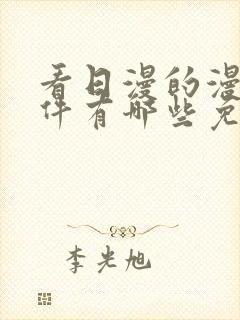 看日漫的漫
件有哪些免
李光旭